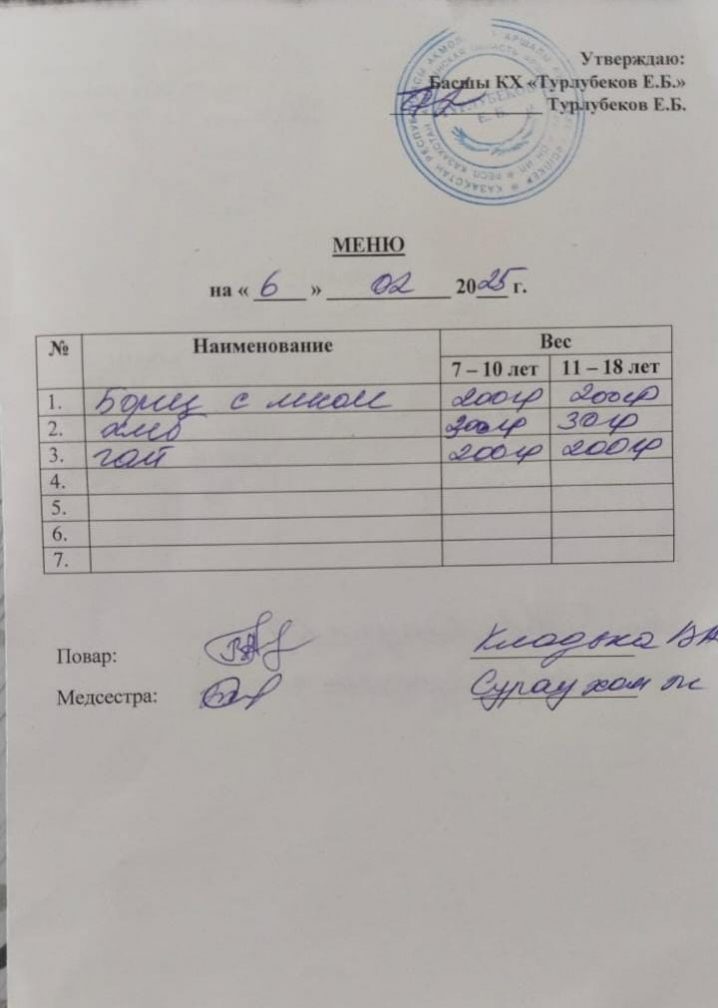 Утверждаю:
Басшы КХ «Турлубеков Е.Б.»
Турлубеков Е.Б.
МЕНЮ
на « 6 » 02 2025 г.
№ Наименование Вес
7 – 10 лет 11 – 18 лет
1. Борщ с мясом 200гр 200гр
2. хлеб 30гр
3. чай 200гр 200гр
4.
5.
6.
7.
Повар: Кладько
Медсестра: